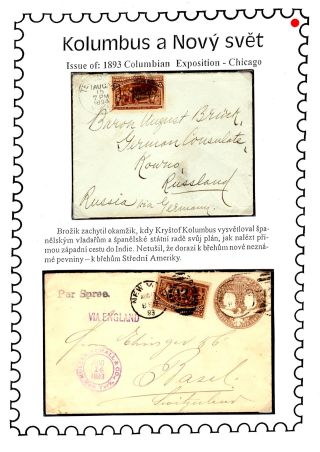 Kolumbus a Nový svět
Issue of: 1893 Columbian Exposition - Chicago
AUG
15
7 PM
1893
Baron August Brück,
German Consulate,
Kowno,
Russland
Russia via Germany.
Brožik zachytil okamžik, kdy Kryštof Kolumbus vysvětoval špa-
nělským vladařům a španělské státní radě svůj plán, jak nalézt pří-
mou západní cestu do Indie. Netušil, že dorazí k břehům nové nezná-
mé pevniny – k břehům Střední Ameriky.
Per Spree.
VIA ENGLAND
NEW Y
93
1893
Basel
Switzerland